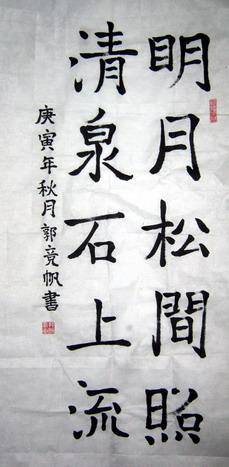 明月松間照
清泉石上流
庚寅年秋月郭竞帆書